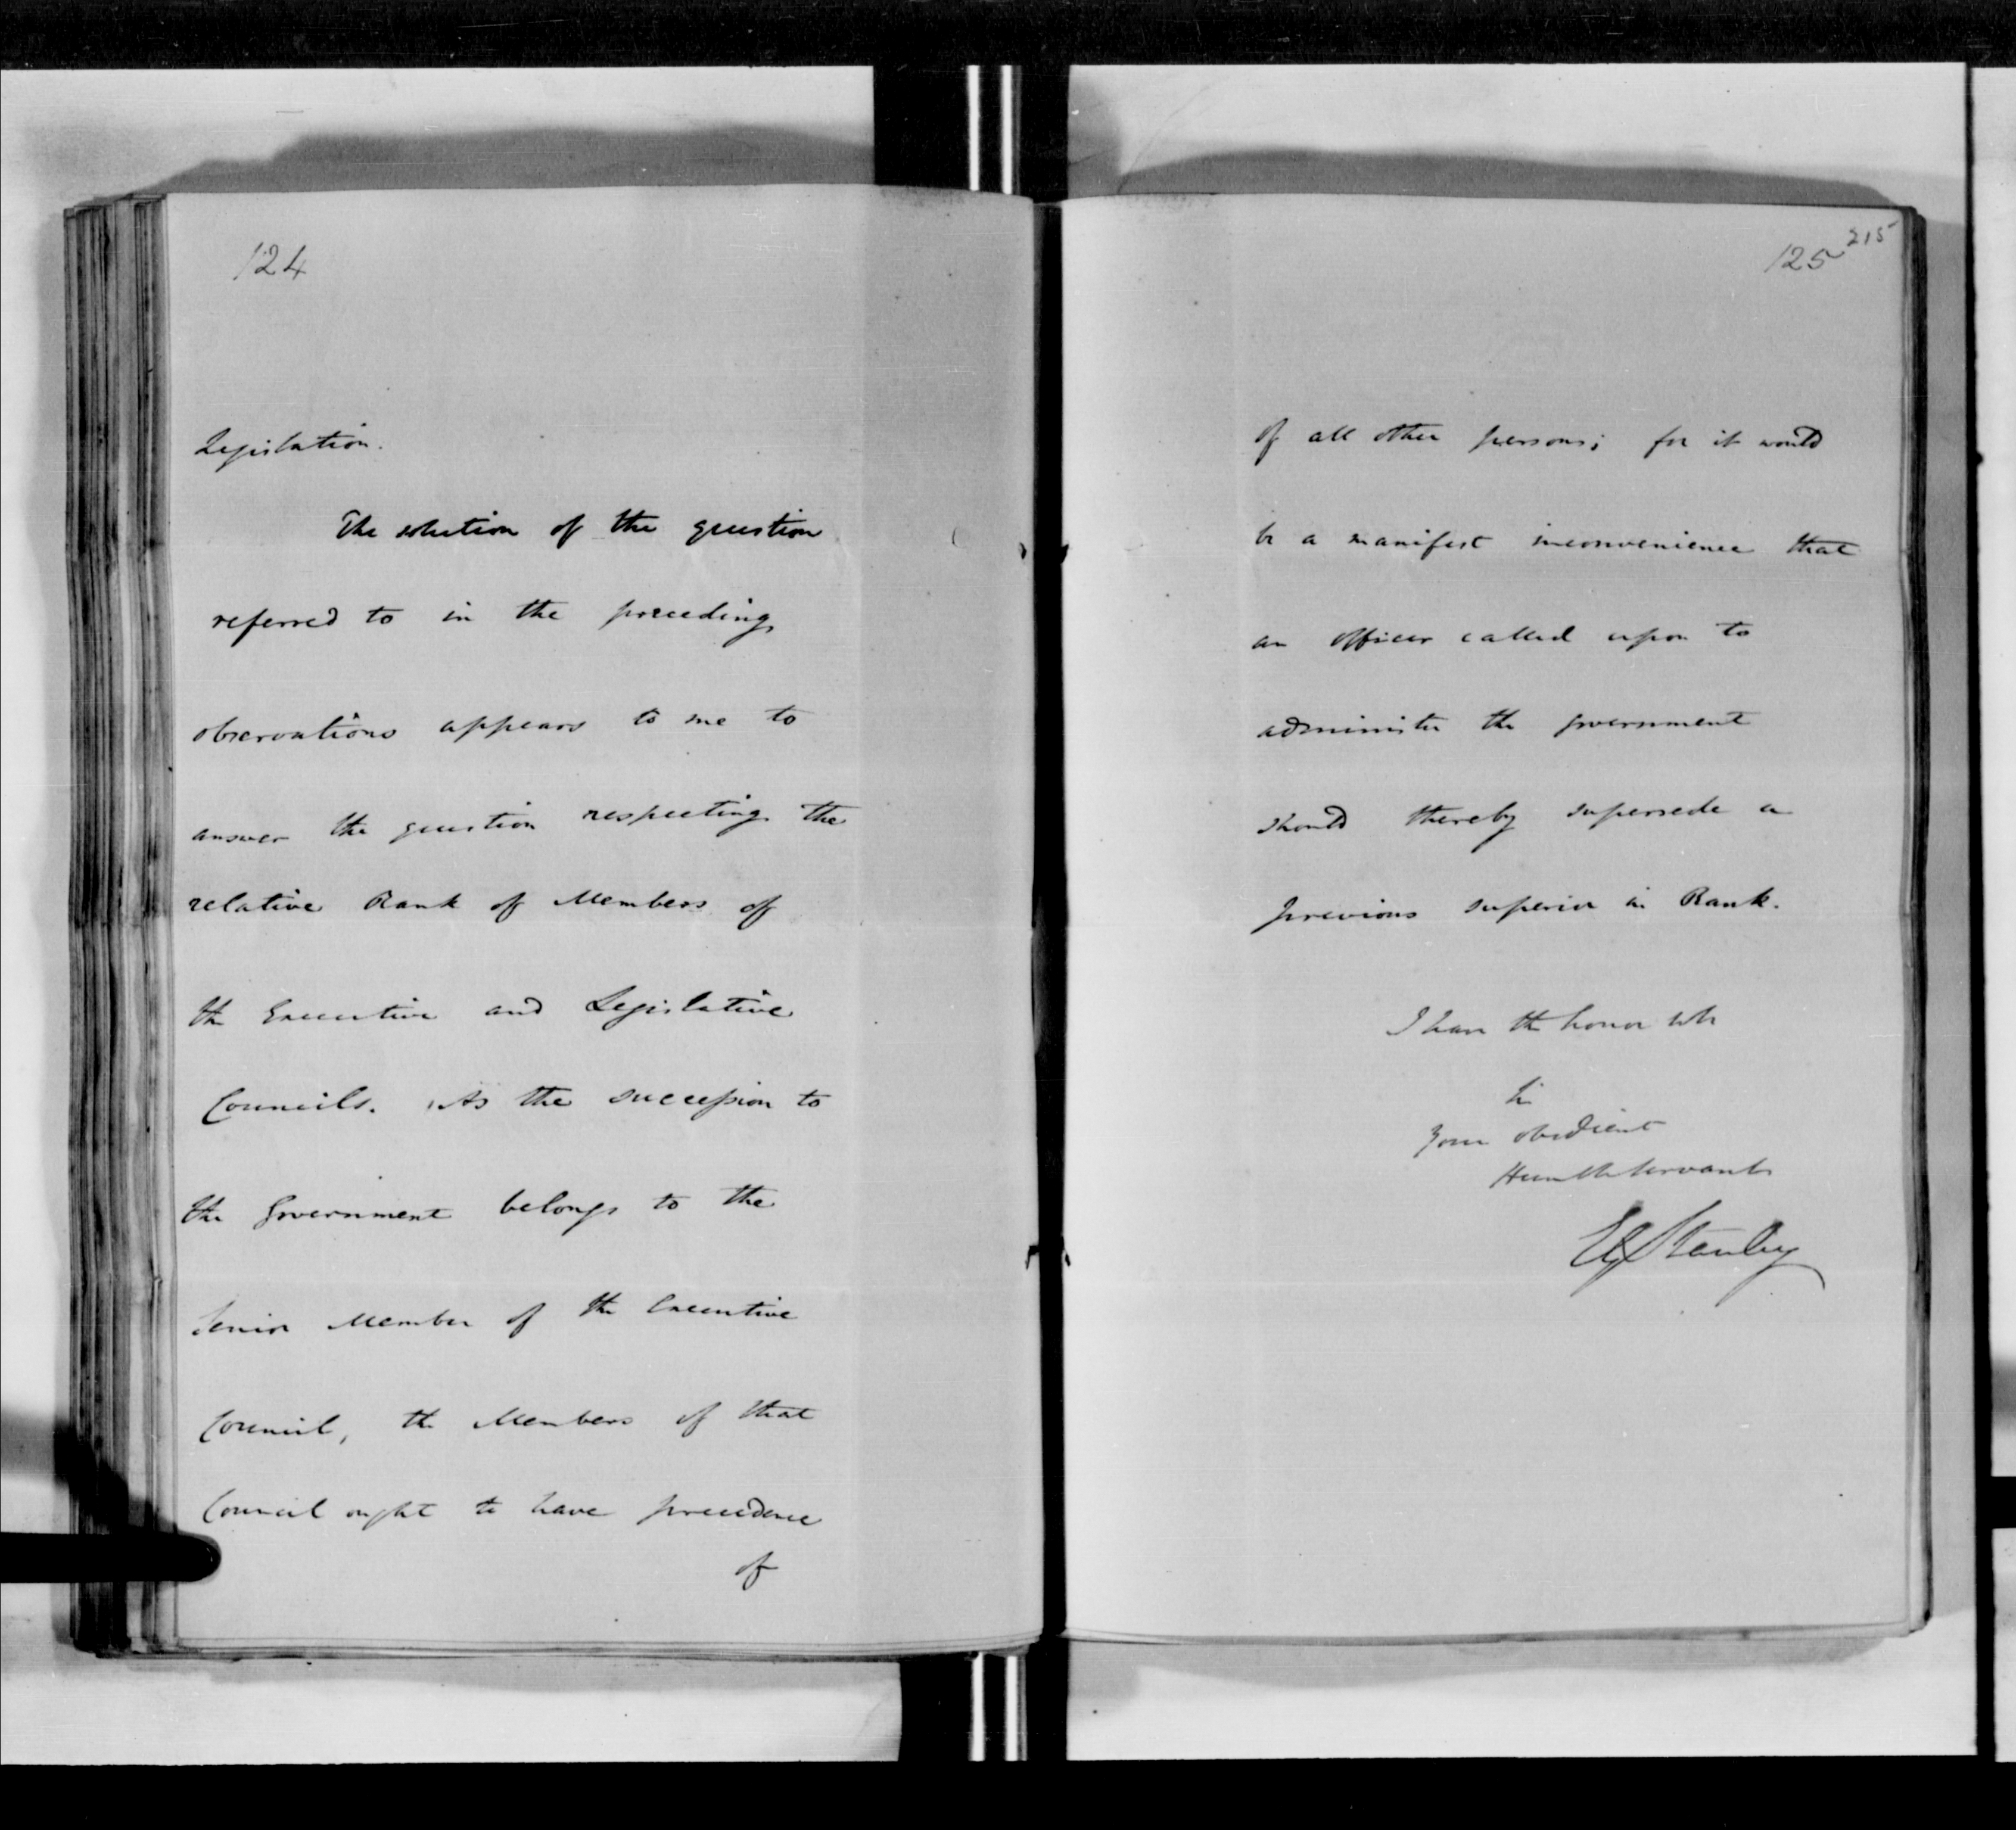 124
Legislation.
The solution of the question
referred to in the preceding
observations appears to me to
answer the question respecting the
relative Rank of Members of
the Executive and Legislative
Councils. As the succession to
the Government belongs to the
Senior Member of the Executive
Council, the Members of that
Council ought to have precedence
of
125 215
of all other persons; for it would
be a manifest inconvenience that
an officer called upon to
administer the government
should thereby supersede a
previous superior in Rank.
I have the honor to be
Sir
Your obedient
Humble Servant
Stanley